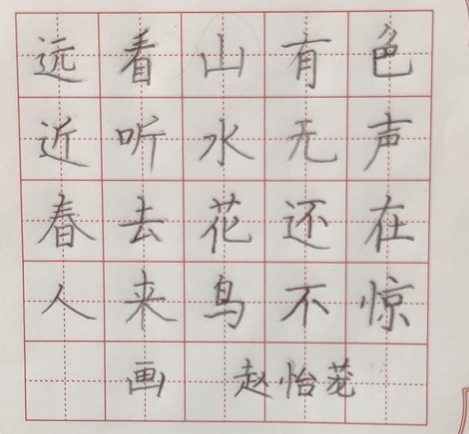 远看山有色
近听水无声
春去花还在
人来鸟不惊
画 赵怡茏